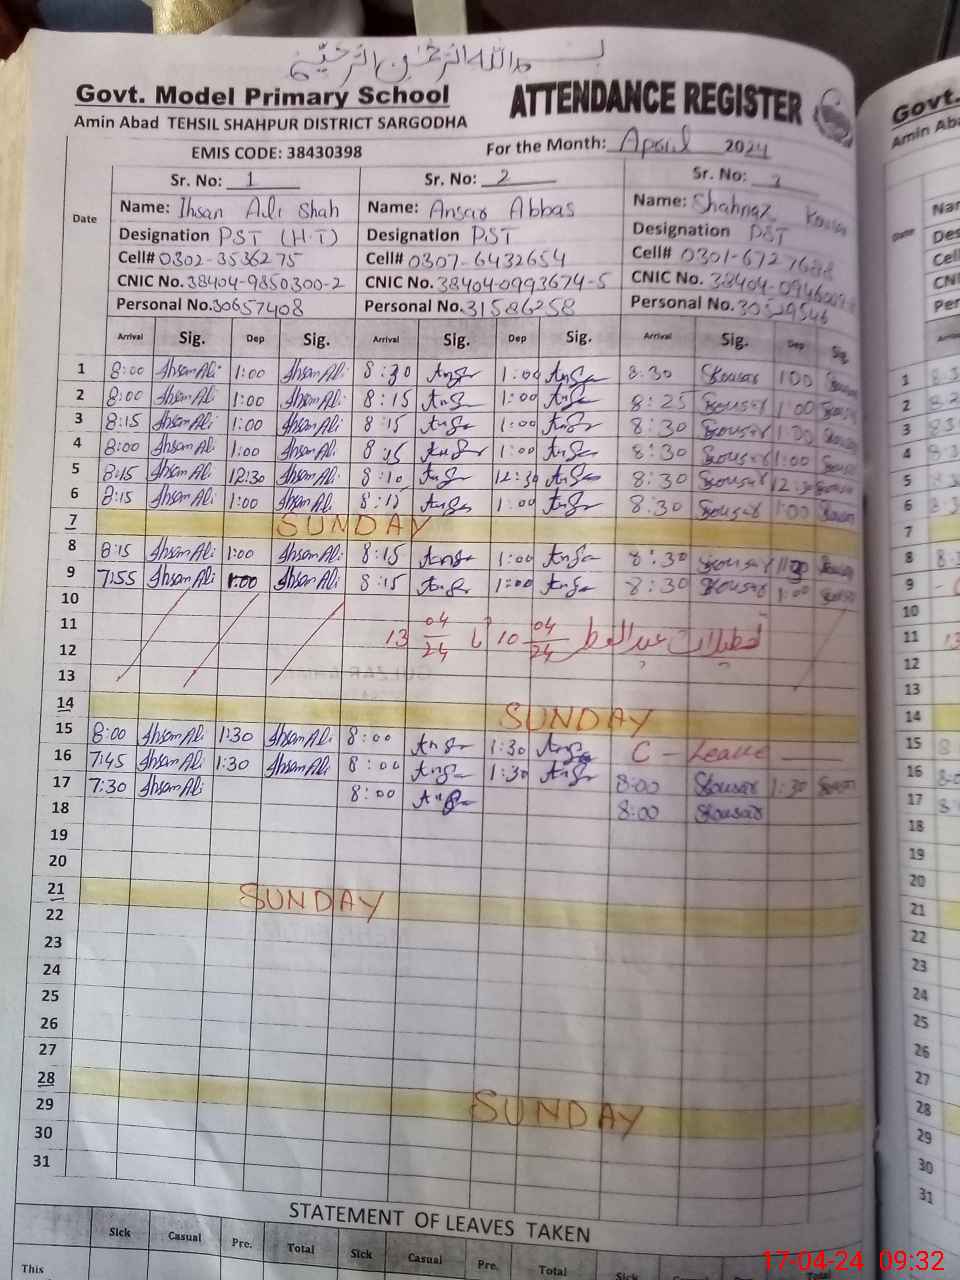 بسم اللہ الرحمٰن الرحیم
Govt. Model Primary School
ATTENDANCE REGISTER
Amin Abad TEHSIL SHAHPUR DISTRICT SARGODHA
EMIS CODE: 38430398
For the Month: April 2024
Date
Sr. No: 1 Sr. No: 2 Sr. No: 3
Name: Ihsan Ali Shah Name: Ansar Abbas Name: Shahnaz Kousar
Designation PST (H.T) Designation PST Designation PST
Cell# 0302-3536275 Cell# 0307-6432654 Cell# 0301-6727688
CNIC No. 38404-9850300-2 CNIC No. 38404-0993674-5 CNIC No. 38404-
Personal No. 30657408 Personal No. 31586258 Personal No. 30529546
Arrival Sig. Dep Sig. Arrival Sig. Dep Sig. Arrival Sig. Dep Sig.
1 8:00 Ihsan Ali 1:00 Ihsan Ali 8:30 Ansar 1:00 Ansar 8:30 Kousar 1:00 Kousar
2 8:00 Ihsan Ali 1:00 Ihsan Ali 8:15 Ansar 1:00 Ansar 8:25 Kousar 1:00 Kousar
3 8:15 Ihsan Ali 1:00 Ihsan Ali 8:15 Ansar 1:00 Ansar 8:30 Kousar 1:00 Kousar
4 8:00 Ihsan Ali 1:00 Ihsan Ali 8:15 Ansar 1:00 Ansar 8:30 Kousar 1:00 Kousar
5 8:15 Ihsan Ali 12:30 Ihsan Ali 8:10 Ansar 12:30 Ansar 8:30 Kousar 12:30 Kousar
6 8:15 Ihsan Ali 1:00 Ihsan Ali 8:15 Ansar 1:00 Ansar 8:30 Kousar 1:00 Kousar
7 SUNDAY
8 8:15 Ihsan Ali 1:00 Ihsan Ali 8:15 Ansar 1:00 Ansar 8:30 Kousar Kousar
9 7:55 Ihsan Ali 1:00 Ihsan Ali 8:15 Ansar 1:00 Ansar 8:30 Kousar 1:00 Kousar
10
11 تعطیلات عید الفطر 10 04/24 تا 13 04/24
12
13
14 SUNDAY
15 8:00 Ihsan Ali 1:30 Ihsan Ali 8:00 Ansar 1:30 Ansar C - Leave
16 7:45 Ihsan Ali 1:30 Ihsan Ali 8:00 Ansar 1:30 Ansar 8:00 Kousar 1:30 Kousar
17 7:30 Ihsan Ali 8:00 Ansar 8:00 Kousar
18
19
20
21 SUNDAY
22
23
24
25
26
27
28 SUNDAY
29
30
31
STATEMENT OF LEAVES TAKEN
Sick Casual Pre. Total Sick Casual Pre. Total Sick Casual
This
Govt.
Amin Ab
Date
Nar
Des
Cell
CNI
Per
1
2
3
4
5
6
7
8
9
10
11
12
13
14
15
16
17
18
19
20
21
22
23
24
25
26
27
28
29
30
31
17-04-24 09:32